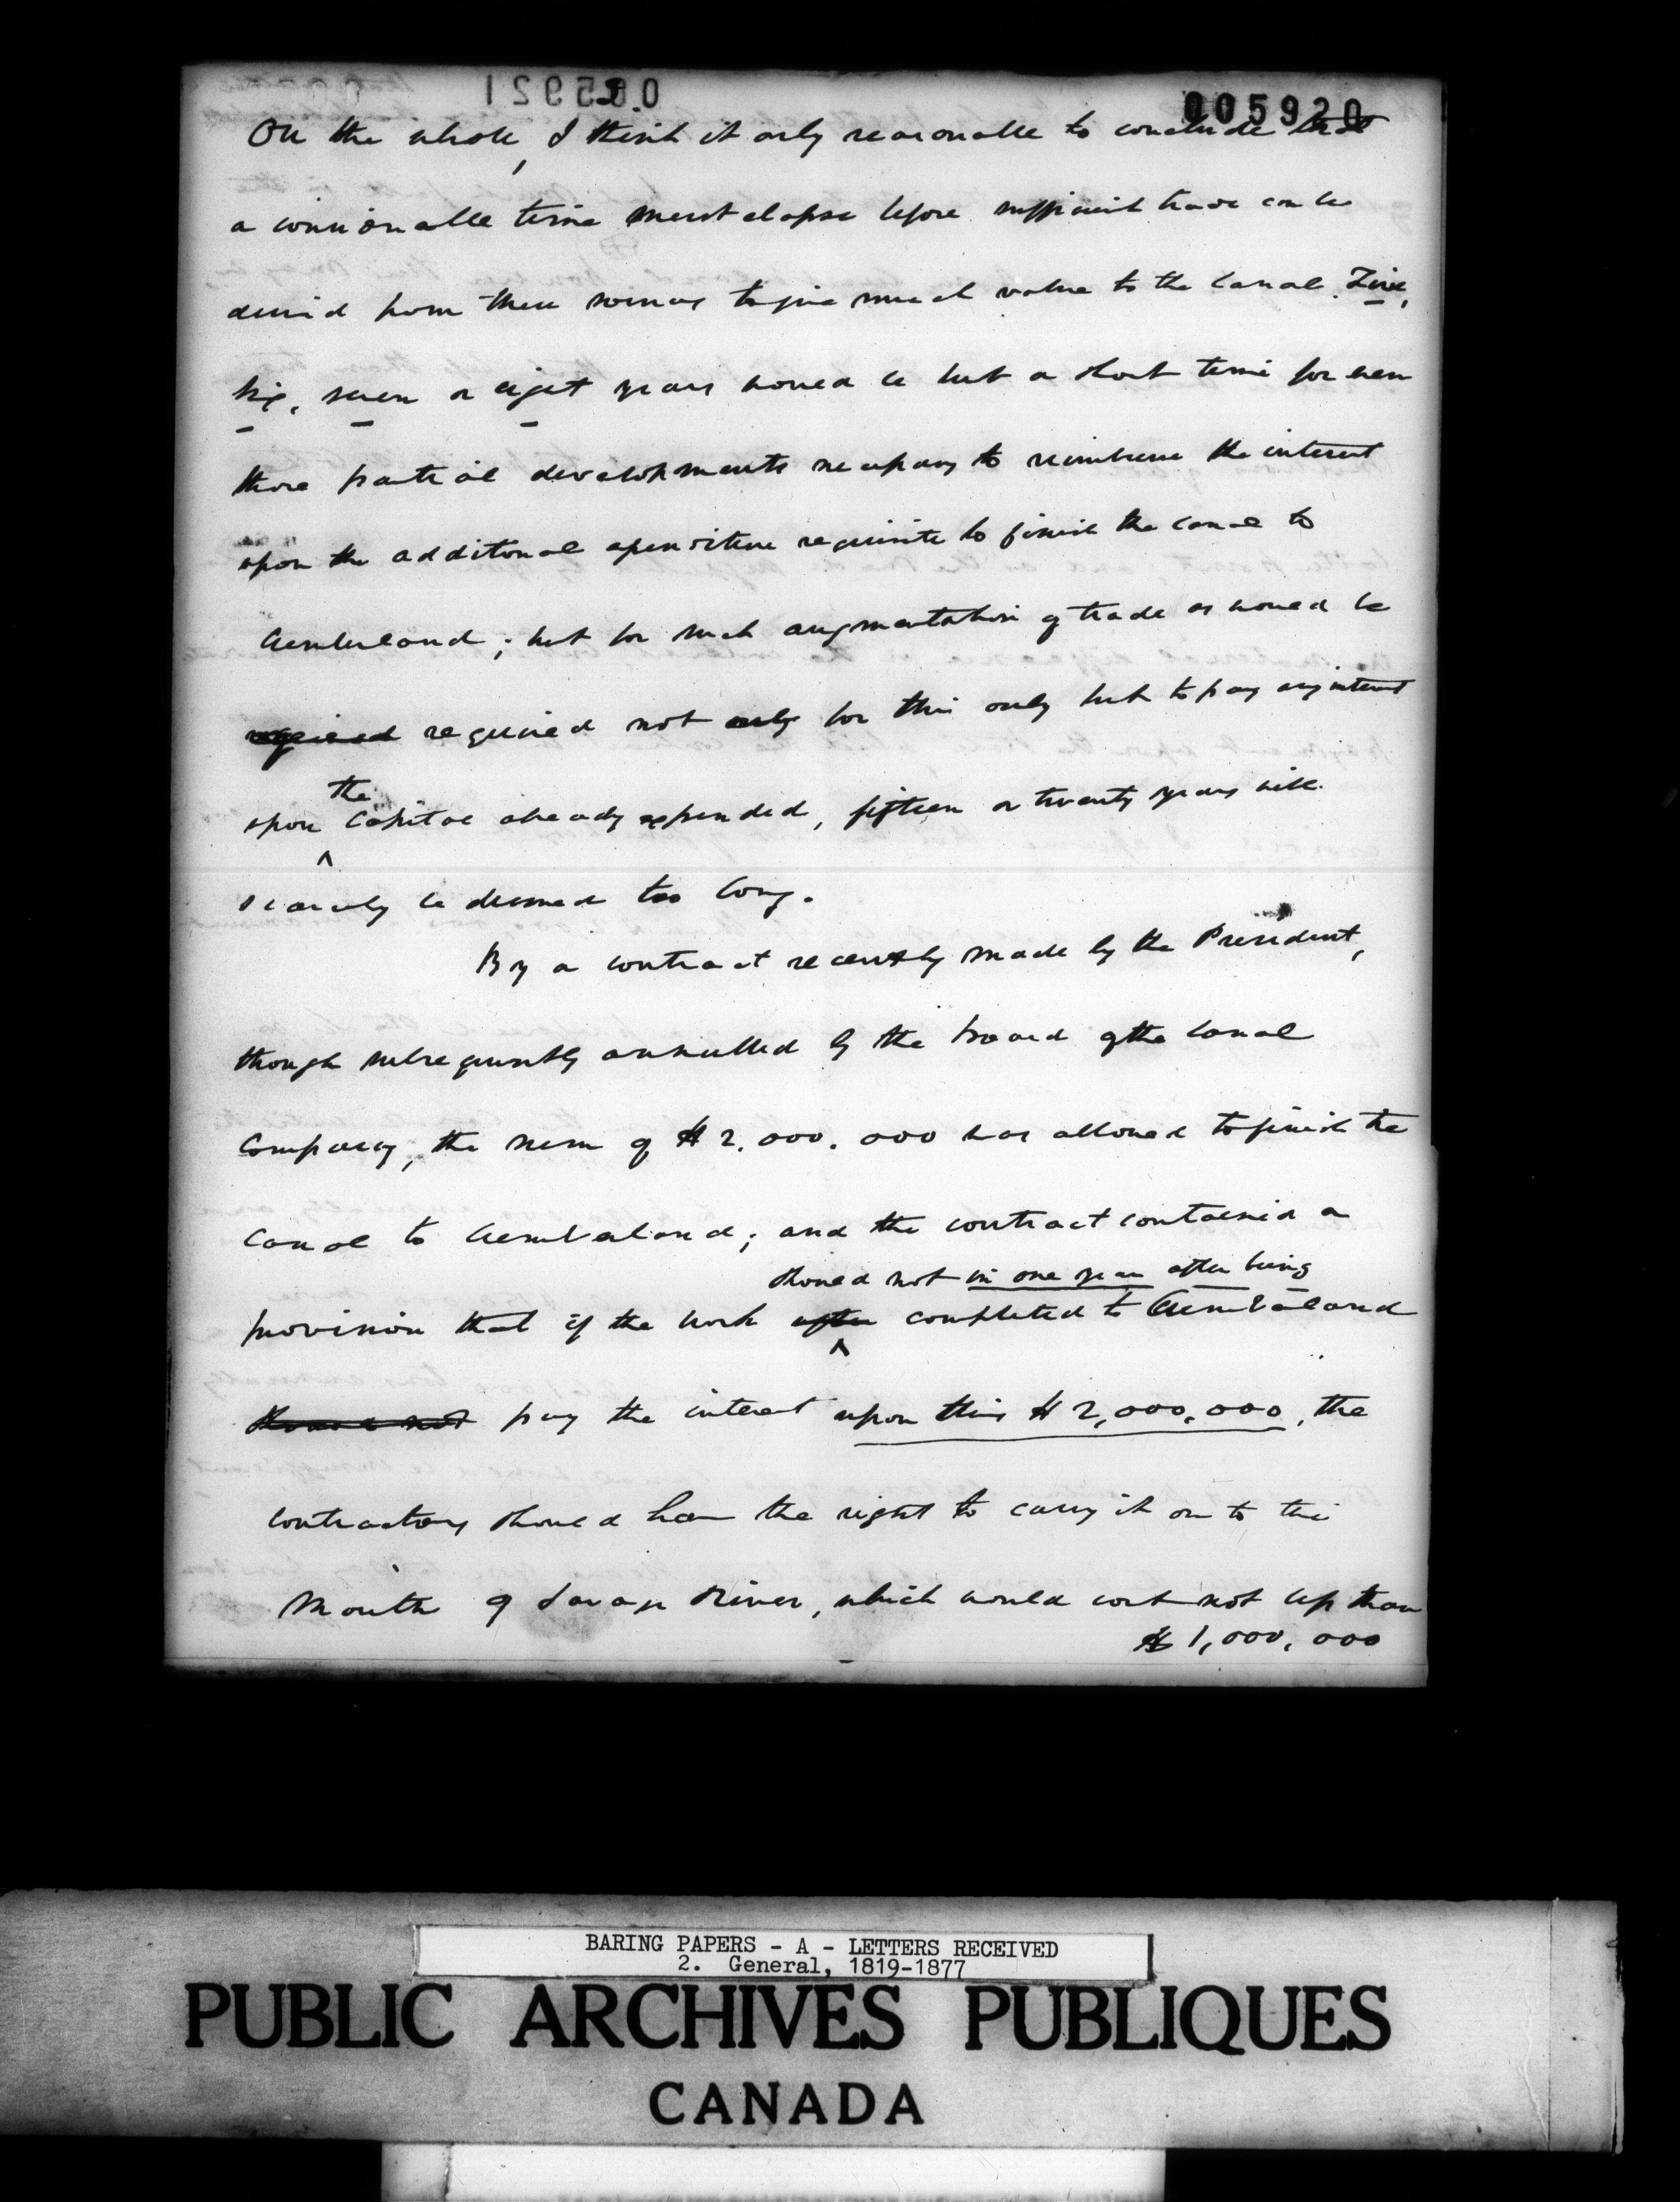 005921
005920
On the whole, I think it only reasonable to conclude that
a considerable time must elapse before sufficient trade can be
derived from these sources to give much value to the Canal. Five,
six, seven or eight years would be but a short time for even
those partial developments necessary to reimburse the interest
upon the additional expenditure requisite to finish the Canal to
Cumberland; but for such augmentation of trade as would be
required required not only for this only but to pay any interest
upon the Capital already expended, fifteen or twenty years will
scarcely be deemed too long.
By a contract recently made by the President,
though subsequently annulled by the board of the Canal
Company, the sum of $2,000,000 was allowed to finish the
Canal to Cumberland; and the contract contained a
should not in one year after being
provision that if the work after completed to Cumberland
should not pay the interest upon this $2,000,000, the
contractors should have the right to carry it on to the
Mouth of Savage River, which would cost not less than
$1,000,000
BARING PAPERS - A - LETTERS RECEIVED
2. General, 1819-1877
PUBLIC ARCHIVES PUBLIQUES
CANADA